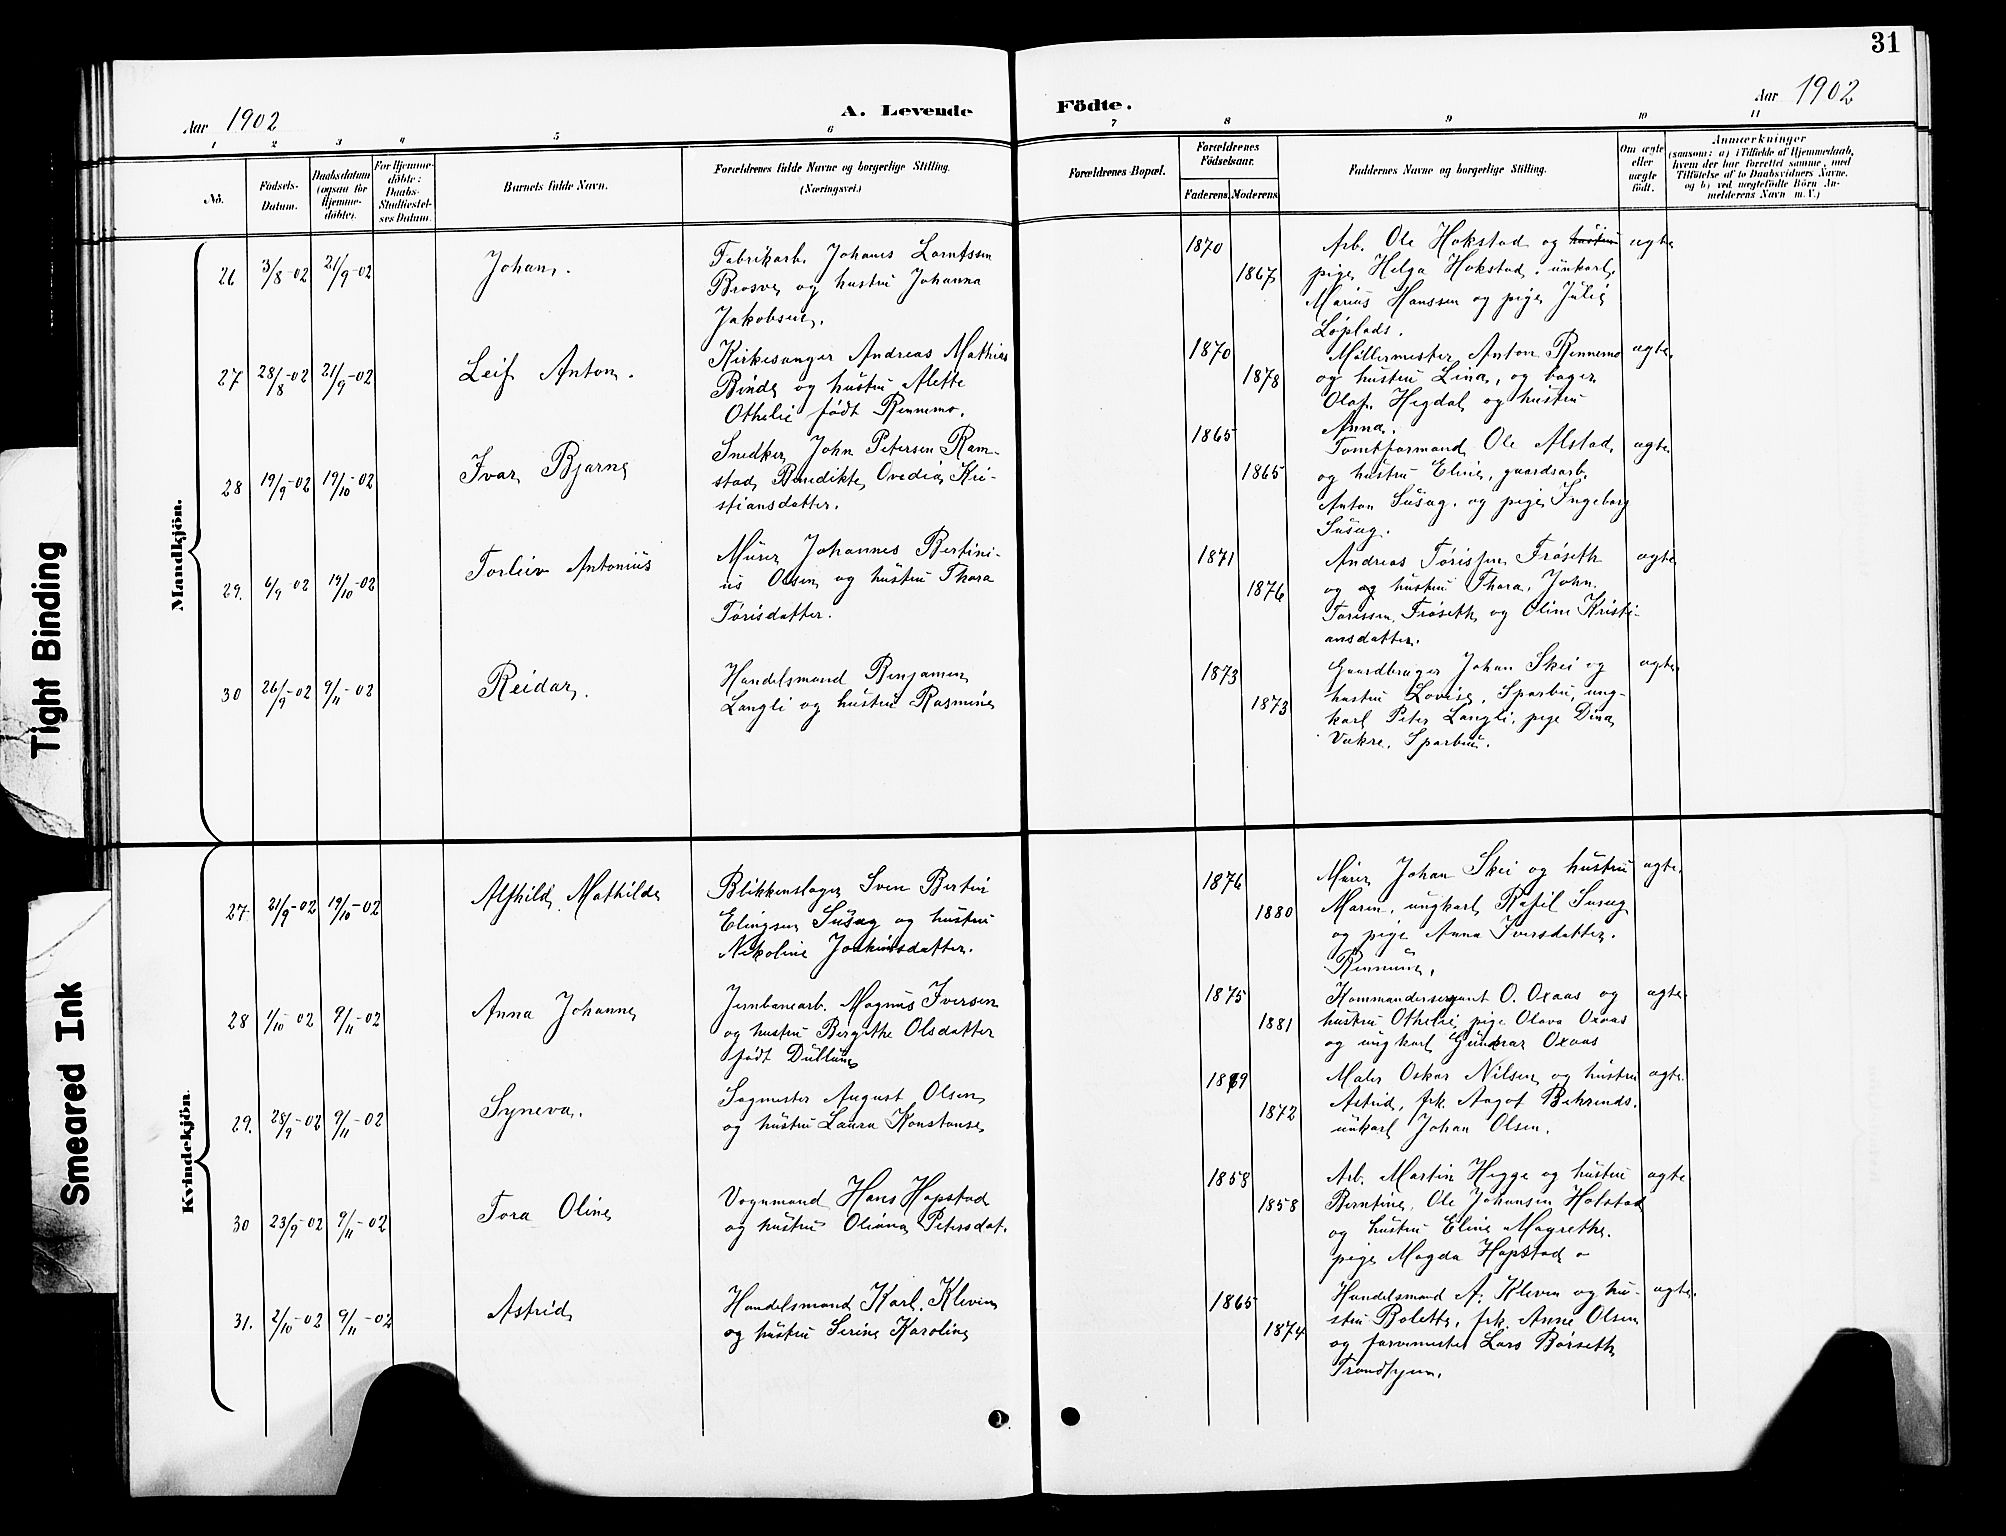 31
Aar 1902
A. Levende
Födte.
Aar 1902
1 2 3 4 5 6 7 8 9 10 11
Nô.
Födsels-
Datum.
Daabsdatum
(ogsaa for
Hjemme-
döbte).
For Hjemme-
döbte:
Daabs-
Stadfæstel-
ses Datum.
Barnets fulde Navn.
Forældrenes fulde Navne og borgerlige Stilling.
(Næringsvei.)
Forældrenes Bopæl.
Forældrenes
Födselsaar.
Faderens. Moderens.
Faddernes Navne og borgerlige Stilling.
Om ægte
eller
uægte
födt.
Anmærkninger
(saasom: a) i Tilfælde af Hjemmedaab,
hvem der har forrettet samme, med
Tilföielse af to Daabsvidners Navne,
og b) ved uægtefödte Börn An-
melderens Navn m. V.)
Mandkjön.
26 3/8-02 21/9-02 Johan.
Fabrikarb. Johans Lorntssen
Brosve og hustru Johanna
Jakobsen.
1870
1867
Arb. Ole Hokstad og hustru
pige Helga Hokstad, unkarl.
Marius Hanssen og pige Julie
Løplads.
ægte
27 28/8-02 21/9-02 Leif Anton.
Kirkesanger Andreas Mathias
Binde og hustru Alette
Othelie født Rennemo.
1870
1878
Møllermester Anton Rennemo
og hustru Lina, og bager
Olaf Hegdal og hustru
Anna.
ægte
28 19/9-02 19/10-02 Ivar Bjarne
Snedker John Petersen Ram-
stad Benedikte Ovedia Kri-
stiansdatter.
1865
1865
Tomtformand Ole Alstad
og hustru Eline, gaardsarb.
Anton Susag, og pige Ingeborg
Susag.
ægte
29. 6/9-02 19/10-02 Torleiv Antonius
Murer Johannes Bertini-
us Olsen og hustru Thora
Torisdatter.
1871
1876
Andreas Torissen Frøseth
og og hustru Thora, John
Torissen Frøseth og Oline Kristi-
ansdatter.
ægte
30 26/9-02 9/11-02 Reidar.
Handelsmand Benjamin
Langli og hustru Rasmine
1873
1873
Gaardbruger Johan Skei og
hustru Lovise, Sparbu, ung-
karl Peter Langli, pige Dina
Vakre, Sparbu.
ægte
Kvindekjön.
27. 21/9-02 19/10-02 Alfhild Mathilde
Blikkenslager Sven Bertin
Elingsen Susag og hustru
Nikoline Joakimsdatter.
1876
1880
Murer Johan Skei og hustru
Maren, ungkarl Rafil Susag
og pige Anna Iversdatter.
ægte
28 1/10 02 9/11-02 Anna Johanne
Jernbanearb. Magnus Iversen
og hustru Bergithe Olsdatter
født Dullum
1875
1881
Kommandersergeant O. Oxaas og
hustru Othelie, pige Olava Oxaas
og ungkarl Gunnar Oxaas
ægte.
29. 28/9-02 9/11-02 Syneva.
Sagmester August Olsen
og hustru Laura Konstanse
1869
1872
Maler Oskar Nilsen og hustru
Astrid, frk. Aagot Behrends.
unkarl Johan Olsen.
ægte.
30 23/9-02 9/11-02 Tora Oline
Vognmand Hans Hapstad
og hustru Oliana Petersdat.
1858
1858
Arb. Martin Hegge og hustru
Berntine, Ole Johansen Hatstad
og hustru Eline Magrethe.
pige Magda Hapstad
ægte
31. 2/10-02 9/11-02 Astrid
Handelsmand Karl Kleven
og hustru Serine Karoline
1865
1874
Handelsmand A. Kleven og hu-
stru Bolette, frk. Anne Olsen
og farvemester Lars Børseth
Trondhjem.
ægte.
Tight Binding
Smeared Ink